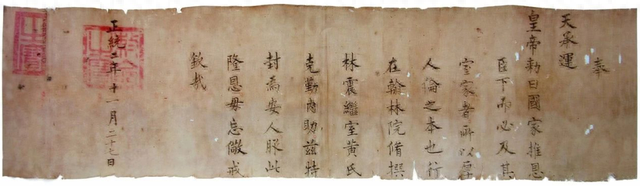 奉
天承運
皇帝勅曰國家推恩
臣下而必及其
室家者所以厚
人倫之本也行
在翰林院脩撰
林震繼室黃氏
克勤内助茲特
封為安人服此
隆恩毋忘儆戒
欽哉
正統二年十一月二十七日